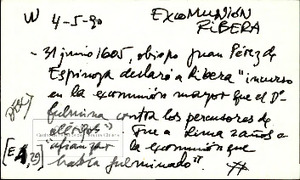 W 4-5-90 EXCOMUNIÓN
RIBERA
- 31 junio 1605, obispo Juan Pérez de
Espinoza declaró a Ribera "incurso
en la excomunión mayor que el Dº
fulmina contra los percusores de
clérigos" que a Lima 2 años a
afianzar la excomunión que
[E 29] había fulminado".